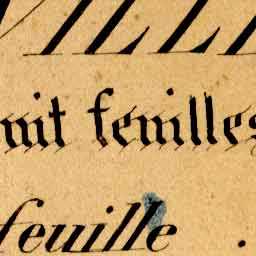 VILL
uit feuilles
feuille .